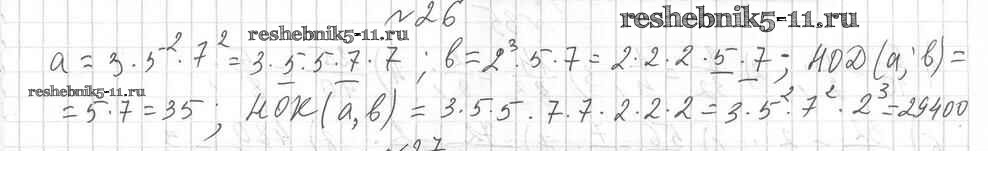 №26
reshebnik5-11.ru
reshebnik5-11.ru
a = 3·5²·7² = 3·5·5·7·7; b = 2³·5·7 = 2·2·2·5·7; НОД(a; b) =
reshebnik5-11.ru
= 5·7 = 35; НОК(a, b) = 3·5·5·7·7·2·2·2 = 3·5²·7²·2³ = 29400
№27